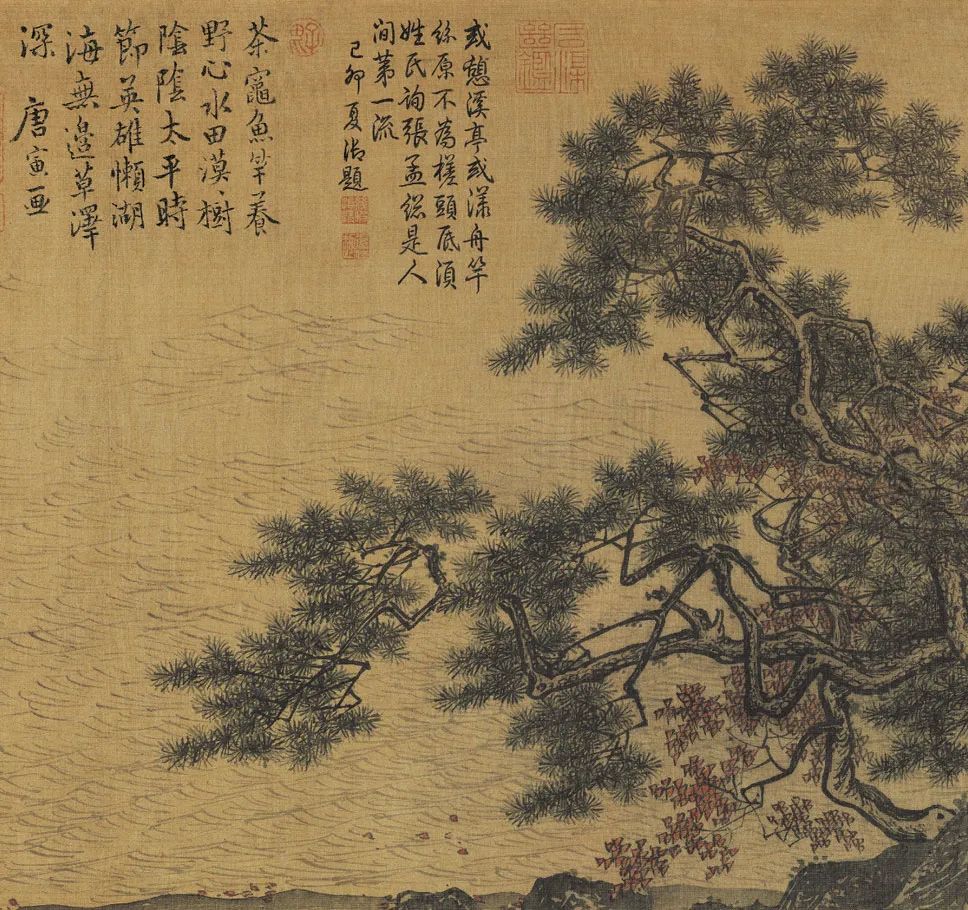 或憩溪亭或漾舟竿
絲原不為槎頭底須
姓氏詢張孟總是人
間第一流
己卯夏御題
茶竈魚竿養
野心水田漠〻樹
陰陰太平時
節英雄懶湖
海無邊草澤
深 唐寅画